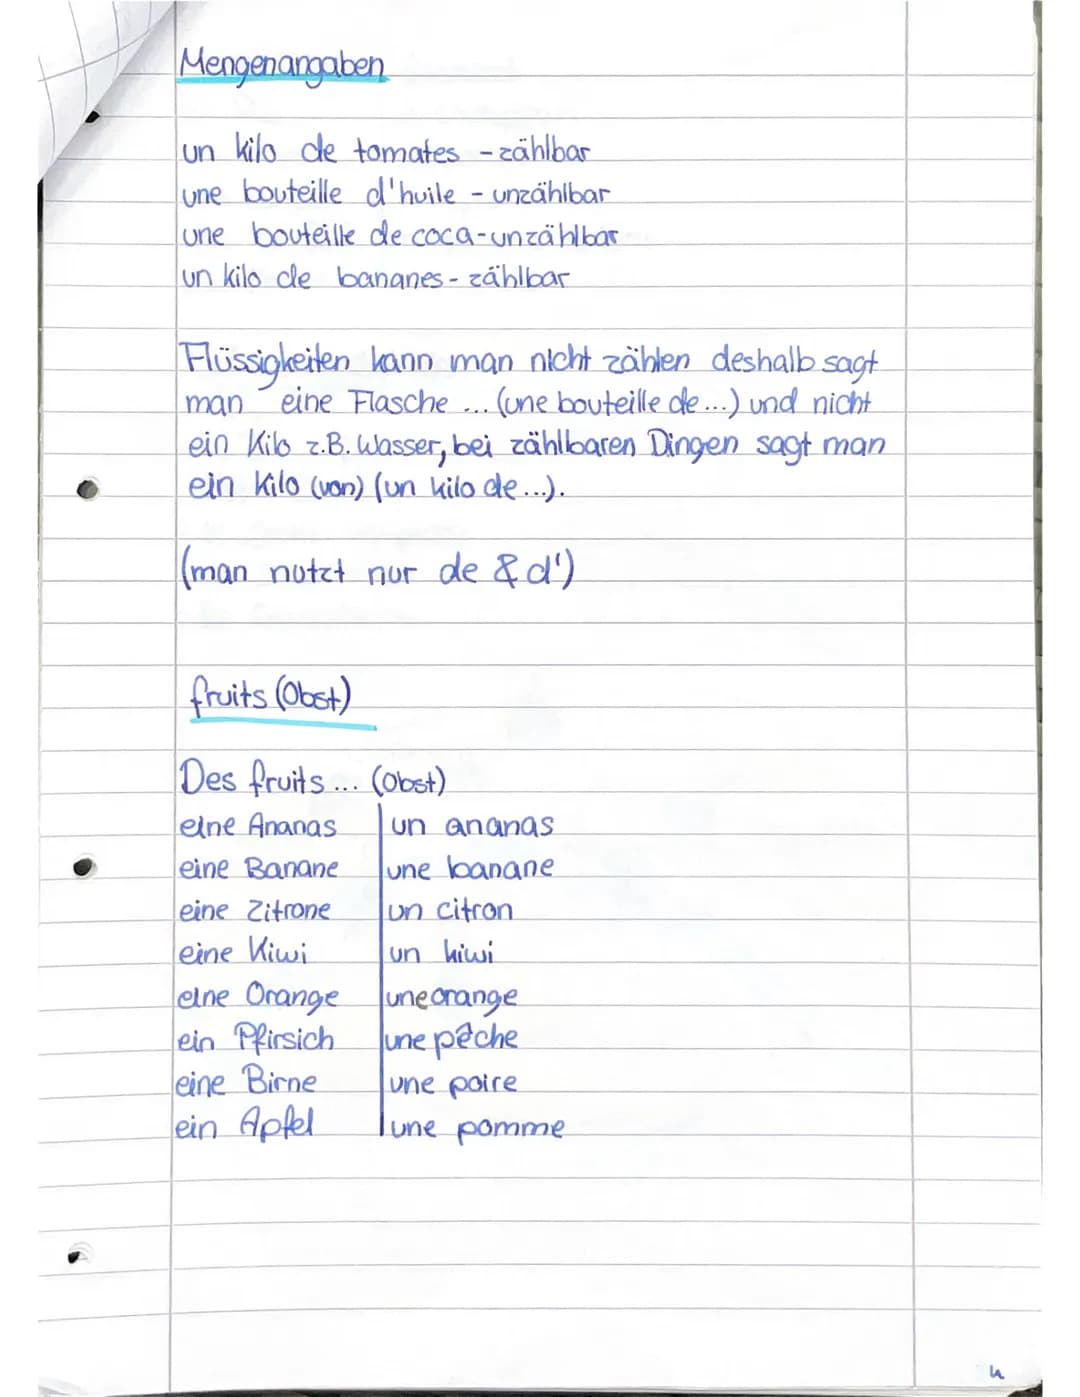 Mengenangaben
un kilo de tomates - zählbar
une bouteille d'huile - unzählbar
une bouteille de coca - unzählbar
un kilo de bananes - zählbar
Flüssigkeiten kann man nicht zählen deshalb sagt
man eine Flasche ... (une bouteille de ...) und nicht
ein Kilo z.B. Wasser, bei zählbaren Dingen sagt man
ein Kilo (von) (un kilo de ...).
(man nutzt nur de & d')
fruits (Obst)
Des fruits ... (Obst)
eine Ananas un ananas
eine Banane une banane
eine Zitrone un citron
eine Kiwi un kiwi
eine Orange une orange
ein Pfirsich une pêche
eine Birne une poire
ein Apfel une pomme